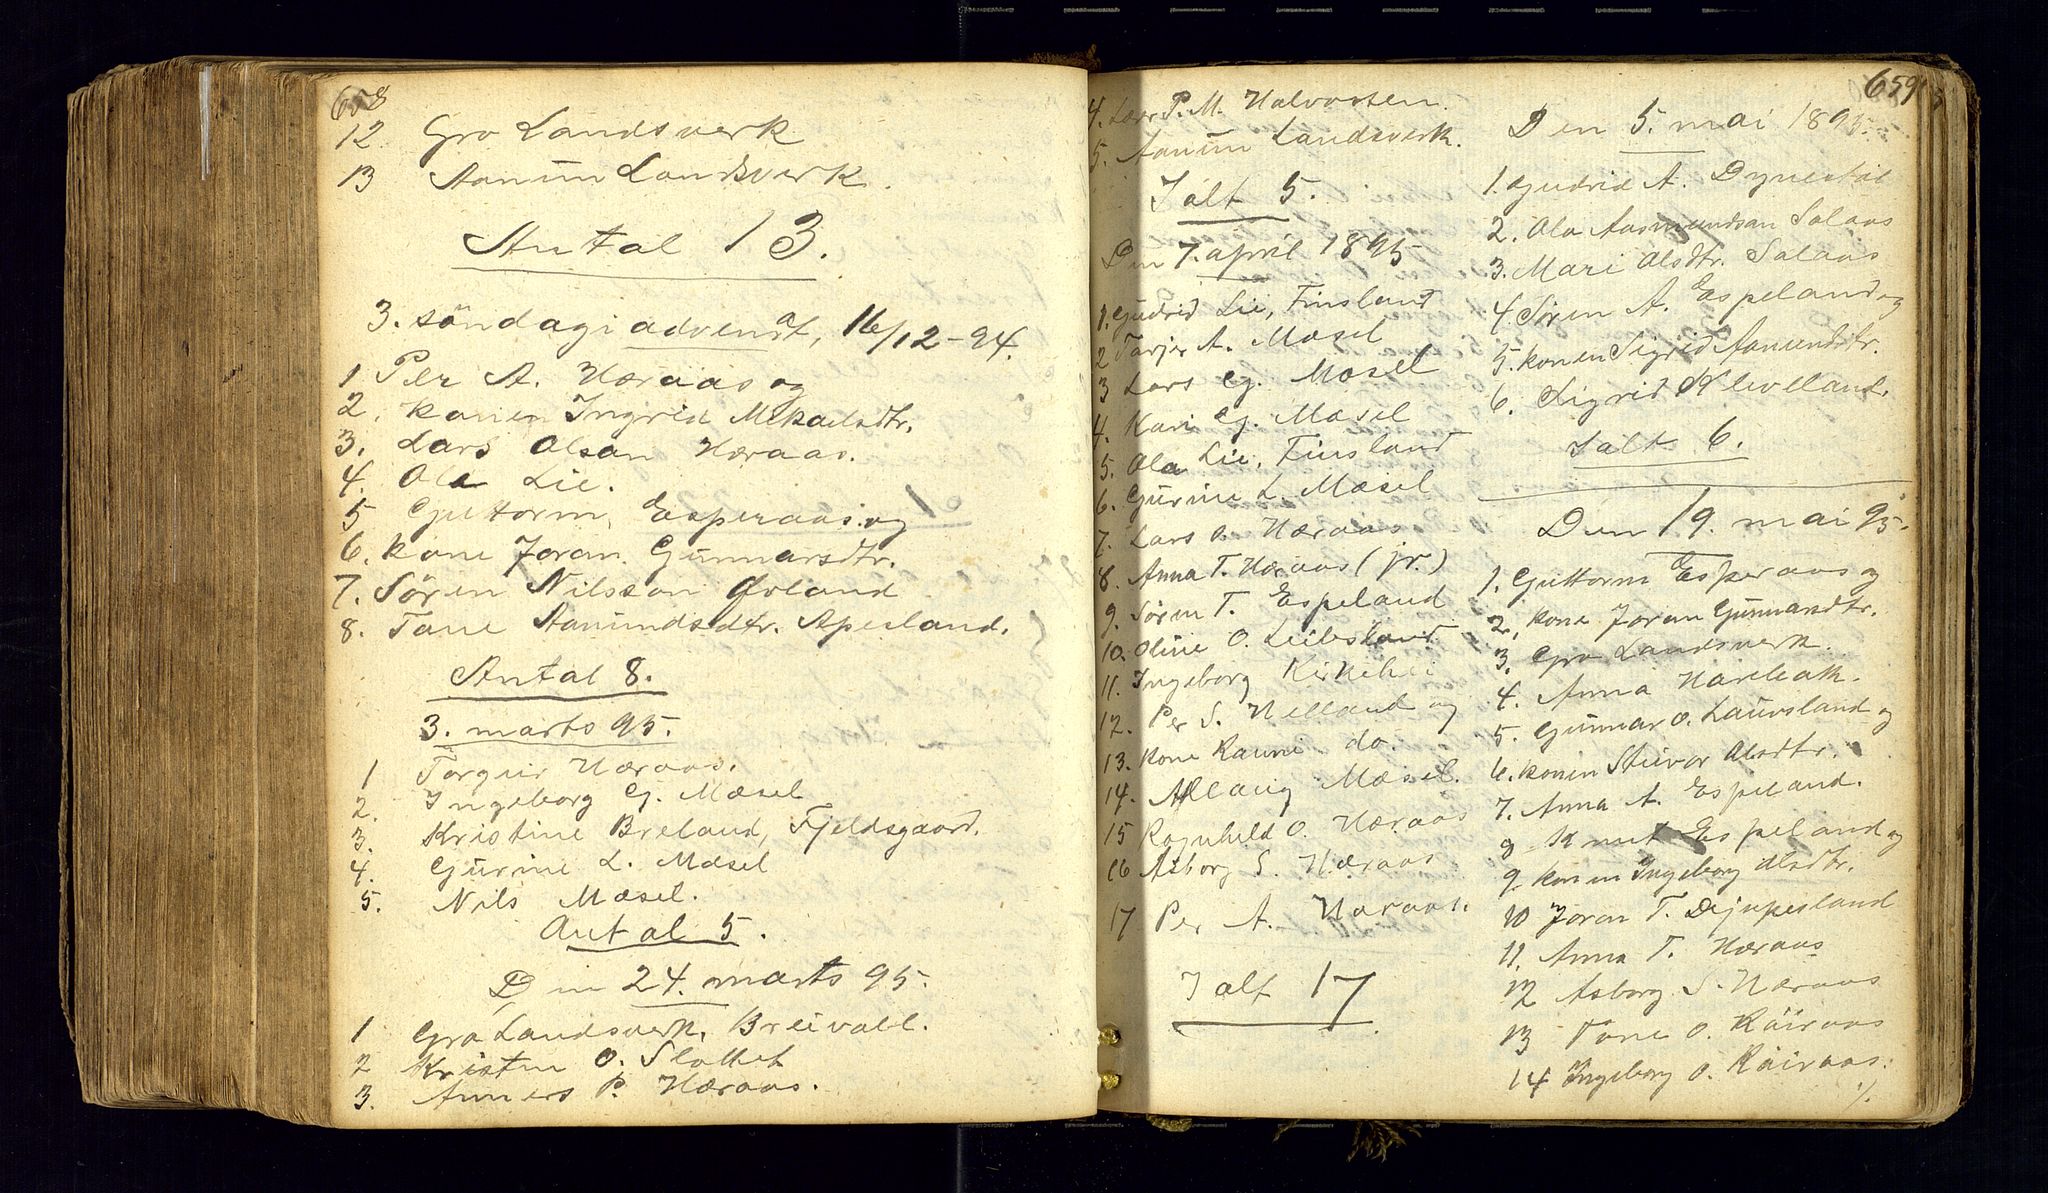 658
12 Gro Landsverk
13 Aanuun Landsverk.
Antal 13.
3. söndag i advendt, 16/12-94.
1 Per A. Hæraas og
2. konen Ingrid Mikaelsdtr.
3. Lars Olsen Hæraas.
4. Ola Lie.
5 Guttorm Esperaas og
6. kone Joran Gunnarsdtr.
7. Sören Nilsson Øvland
8. Tone Aanundsdtr. Apesland.
Antal 8.
3. marts 95.
1 Torgeir Hæraas.
2. Ingeborg G. Mæsel
3. Kristine Breland, Fjeldsgaard.
4. Gurine L. Mæsel
5. Nils Mæsel.
Antal 5.
Den 24. marts 95.
1 Gro Landsverk, Breivoll.
2 Kristen O. Slottet
3. Anners P. Hæraas.
4. Lærer P. M. Halvorsen.
5. Aanuun Landsverk.
I alt 5.
Den 7. april 1895
1. Gudrid Lie, Finsland
2 Tarjer A. Mæsel
3 Lars G. Mæsel
4. Kari G. Mæsel
5. Ola Lie, Finsland
6. Gurine L. Mæsel
7. Lars O. Hæraas
8. Anna T. Hæraas (jr.)
9. Sören T. Espeland
10. Oline O. Leilesland
11. Ingeborg
12. Per S. Helland og
13. kone Raune do.
14. Aslaug Mæsel.
15 Ragnhild O. Hæraas
16 Asborg S. Hæraas
17 Per A. Hæraas.
I alt 17
659
Den 5. mai 1895.
1. Gudrid A. Dynestøl
2. Ola Aasmundsan Salaas
3. Mari Olsdtr. Salaas
4. Sören A. Espeland og
5. konen Sigrid Aanundsdtr.
6. Sigrid Kleveland.
I alt 6.
Den 19. mai 95.
1. Guttorm Esperaas og
2. kone Joran Gunnarsdtr.
3. Gro Landsverk.
4. Anna
5. Gunnar O. Lauvsland og
6. konen Steivor Olsdtr.
7. Anna A. Espeland.
8 Knut Espeland og
9. konen Ingeborg Olsdtr.
10 Joran T. Djupesland
11. Anna T. Hæraas
12 Asborg S. Hæraas
13 Tone O. Röiraas
14 Ingeborg O. Röiraas.
./.